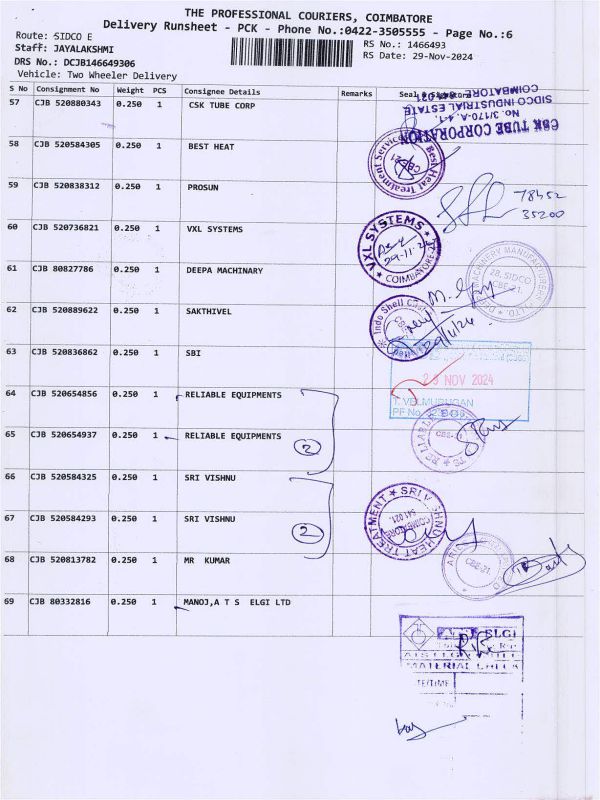 THE PROFESSIONAL COURIERS, COIMBATORE
Delivery Runsheet - PCK - Phone No.:0422-3505555 - Page No.:6
Route: SIDCO E
Staff: JAYALAKSHMI
DRS No.: DCJB146649306
Vehicle: Two Wheeler Delivery
RS No.: 1466493
RS Date: 29-Nov-2024
S No Consignment No Weight PCS Consignee Details Remarks Seal & Signature
57 CJB 520880343 0.250 1 CSK TUBE CORP
CBK TUBE CORPORATION
No.3/170-A, 4-1,
SIDCO INDUSTRIAL ESTATE
COIMBATORE - 641 021
58 CJB 520584305 0.250 1 BEST HEAT
Best Heat Treatment Services
CBE-21
59 CJB 520838312 0.250 1 PROSUN
78452
35200
60 CJB 520736821 0.250 1 VXL SYSTEMS
VXL SYSTEMS
29-11-2
COIMBATORE
61 CJB 80827786 0.250 1 DEEPA MACHINARY
MACHINERY MANUFACTURERS
28, SIDCO
CBE-21.
62 CJB 520889622 0.250 1 SAKTHIVEL
Indo Shell
CBE
29/11/24
63 CJB 520836862 0.250 1 SBI
29 NOV 2024
T. VELMURUGAN
PF No.
64 CJB 520654856 0.250 1 RELIABLE EQUIPMENTS
65 CJB 520654937 0.250 1 RELIABLE EQUIPMENTS
2
RELIABLE
CBE-21
66 CJB 520584325 0.250 1 SRI VISHNU
67 CJB 520584293 0.250 1 SRI VISHNU
2
SRI VISHNU HEAT TREATMENT
COIMBATORE
641 021.
68 CJB 520813782 0.250 1 MR KUMAR
CBE-21.
69 CJB 80332816 0.250 1 MANOJ,A T S ELGI LTD
ELGI
ATS ELGI
MATERIAL